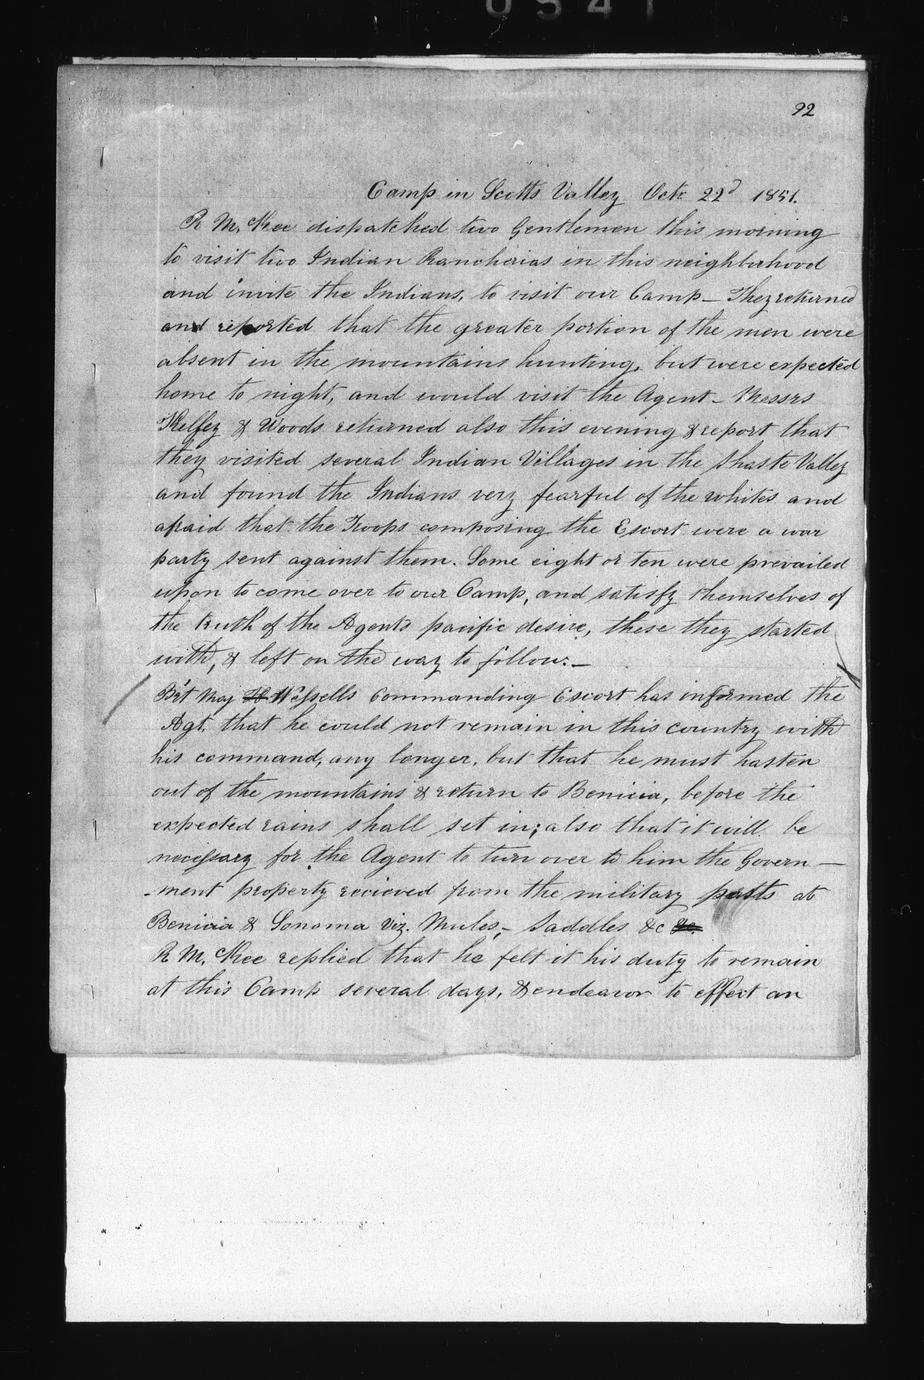 0541
92
Camp in Scotts Valley Octr. 22d 1851.
R McKee dispatched two Gentlemen this morning
to visit two Indian Rancherias in this neighborhood
and invite the Indians, to visit our Camp — They returned
and reported that the greater portion of the men were
absent in the mountains hunting, but were expected
home to night, and would visit the Agent — Messrs
Kelsey & Woods returned also this evening & report that
they visited several Indian Villages in the Shasta Valley
and found the Indians very fearful of the whites and
afraid that the Troops composing the Escort were a war
party sent against them. Some eight or ten were prevailed
upon to come over to our Camp, and satisfy themselves of
the truth of the Agents pacific desire, these they started
with, & left on the way to follow. —
Bvt Maj H. Wessells Commanding Escort has informed the
Agt. that he could not remain in this country with
his command, any longer, but that he must hasten
out of the mountains & return to Benicia, before the
expected rains shall set in; also that it will be
necessary for the Agent to turn over to him the Govern —
- ment property recieved from the military posts at
Benicia & Sonoma viz. Mules, — Saddles &c &c.
R McKee replied that he felt it his duty to remain
at this Camp several days, & endeavor to effect an